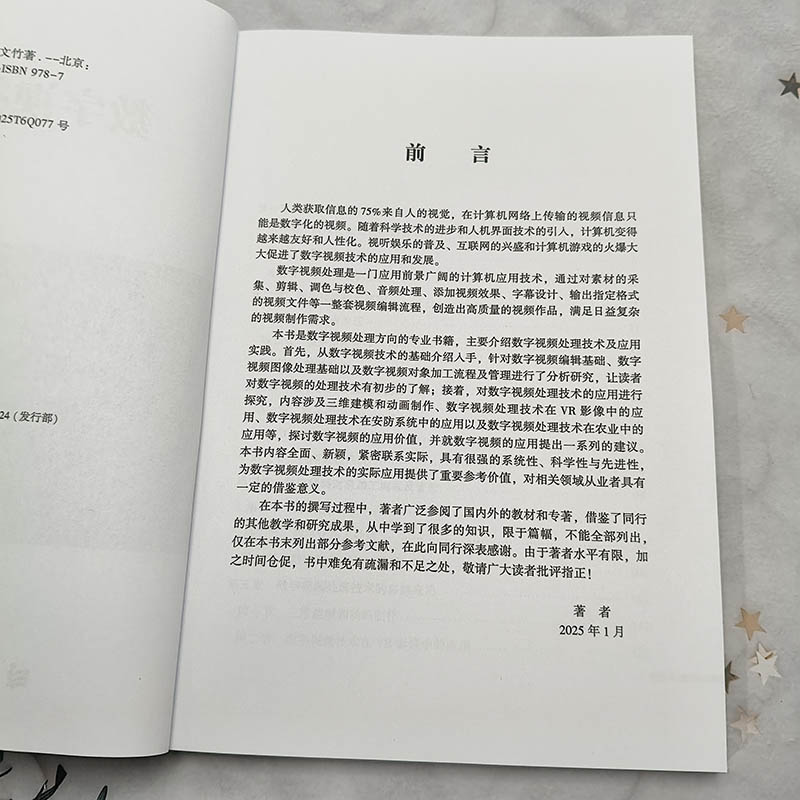 文竹著. --北京:
ISBN 978-7
25T6Q077 号
24 (发行部)
前 言
人类获取信息的 75%来自人的视觉，在计算机网络上传输的视频信息只
能是数字化的视频。随着科学技术的进步和人机界面技术的引入，计算机变得
越来越友好和人性化。视听娱乐的普及、互联网的兴盛和计算机游戏的火爆大
大促进了数字视频技术的应用和发展。
数字视频处理是一门应用前景广阔的计算机应用技术，通过对素材的采
集、剪辑、调色与校色、音频处理、添加视频效果、字幕设计、输出指定格式
的视频文件等一整套视频编辑流程，创造出高质量的视频作品，满足日益复杂
的视频制作需求。
本书是数字视频处理方向的专业书籍，主要介绍数字视频处理技术及应用
实践。首先，从数字视频技术的基础介绍入手，针对数字视频编辑基础、数字
视频图像处理基础以及数字视频对象加工流程及管理进行了分析研究，让读者
对数字视频的处理技术有初步的了解；接着，对数字视频处理技术的应用进行
探究，内容涉及三维建模和动画制作、数字视频处理技术在 VR 影像中的应
用、数字视频处理技术在安防系统中的应用以及数字视频处理技术在农业中的
应用等，探讨数字视频的应用价值，并就数字视频的应用提出一系列的建议。
本书内容全面、新颖，紧密联系实际，具有很强的系统性、科学性与先进性，
为数字视频处理技术的实际应用提供了重要参考价值，对相关领域从业者具有
一定的借鉴意义。
在本书的撰写过程中，著者广泛参阅了国内外的教材和专著，借鉴了同行
的其他教学和研究成果，从中学到了很多的知识，限于篇幅，不能全部列出，
仅在本书末列出部分参考文献，在此向同行深表感谢。由于著者水平有限，加
之时间仓促，书中难免有疏漏和不足之处，敬请广大读者批评指正！
著 者
2025 年 1 月